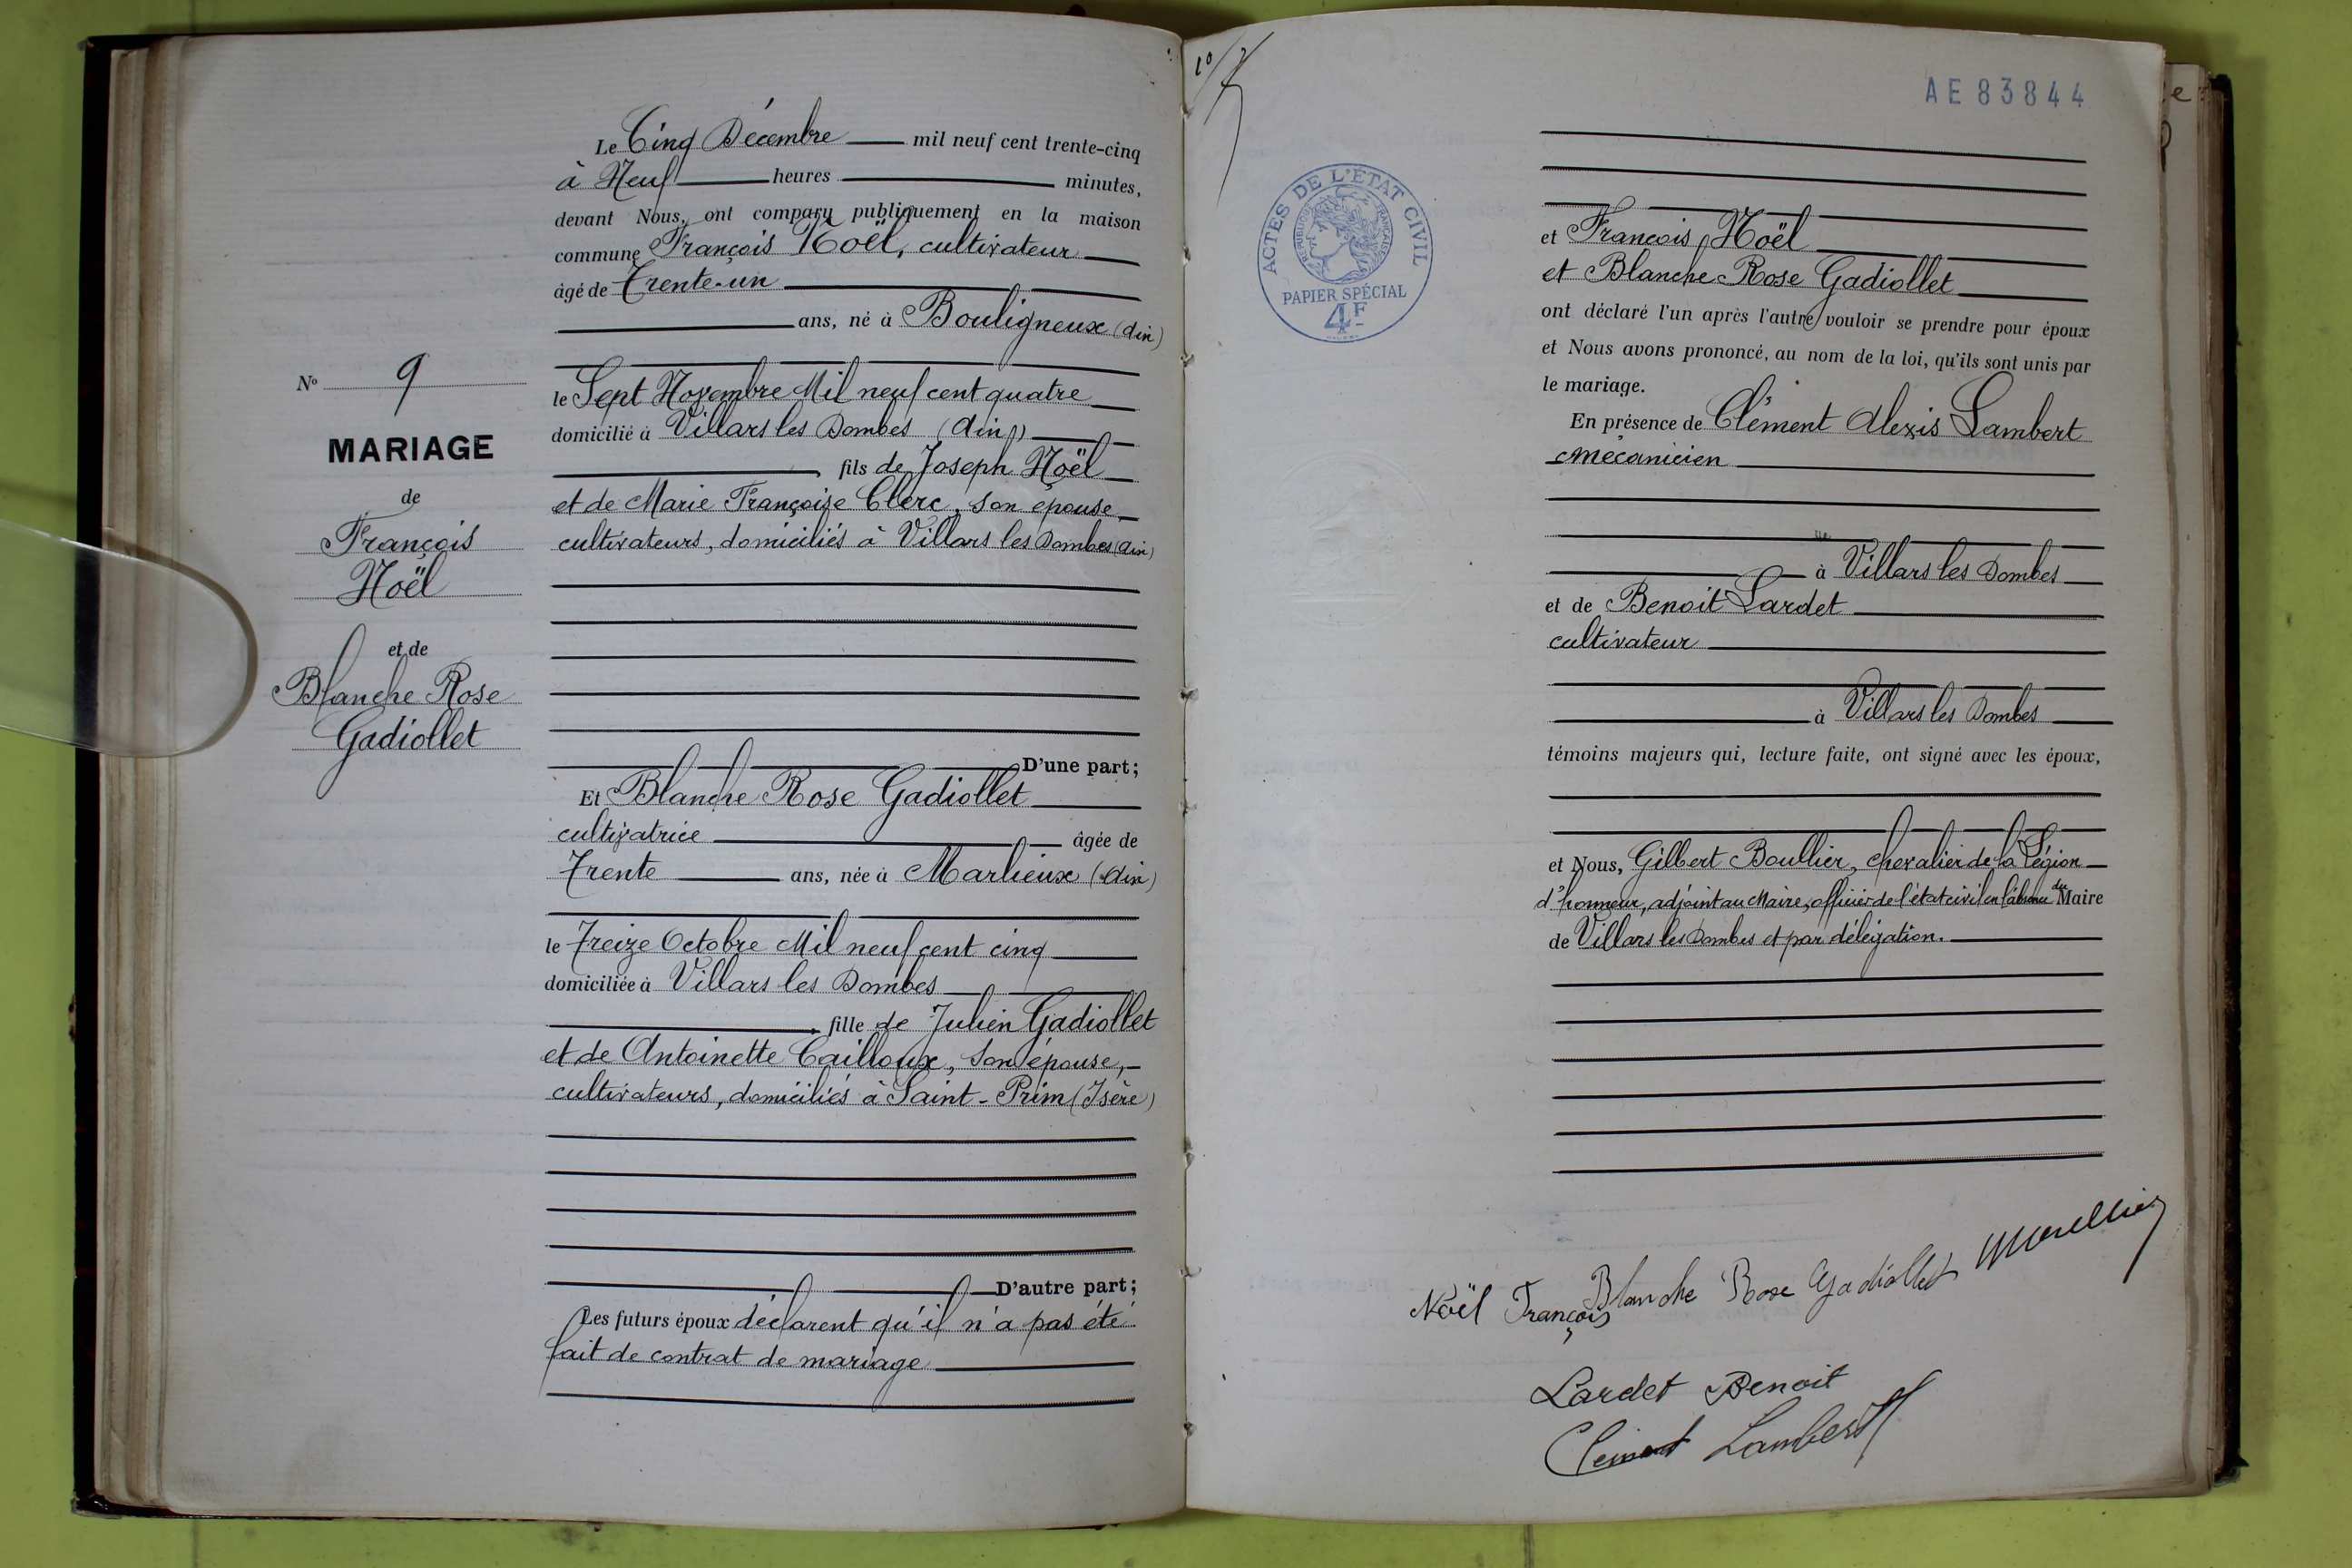 Le Cinq Décembre mil neuf cent trente-cinq
à Neuf heures minutes,
devant Nous, ont comparu publiquement en la maison
commune François Noël, cultivateur
âgé de Trente-un
ans, né à Bouligneux (Ain)
le Sept Novembre Mil neuf cent quatre
domicilié à Villars les Dombes (Ain)
fils de Joseph Noël
et de Marie Françoise Clerc, son épouse,
cultivateurs, domiciliés à Villars les Dombes (Ain)
D'une part;
Et Blanche Rose Gadiollet
cultivatrice âgée de
Trente ans, née à Marlieux (Ain)
le Treize Octobre Mil neuf cent cinq
domiciliée à Villars les Dombes
fille de Julien Gadiollet
et de Antoinette Cailloux, son épouse,
cultivateurs, domiciliés à Saint-Prim (Isère)
D'autre part;
Les futurs époux déclarent qu'il n'a pas été
fait de contrat de mariage
No 9
MARIAGE
de
François
Noël
et de
Blanche Rose
Gadiollet
AE 83844
ACTES DE L'ÉTAT CIVIL
RÉPUBLIQUE FRANÇAISE
PAPIER SPÉCIAL
4F
et François Noël
et Blanche Rose Gadiollet
ont déclaré l'un après l'autre vouloir se prendre pour époux
et Nous avons prononcé, au nom de la loi, qu'ils sont unis par
le mariage.
En présence de Clément Alexis Lambert
mécanicien
à Villars les Dombes
et de Benoit Lardet
cultivateur
à Villars les Dombes
témoins majeurs qui, lecture faite, ont signé avec les époux,
et Nous, Gilbert Boullier, chevalier de la Légion
d'honneur, adjoint au Maire, officier de l'état civil en l'absence du Maire
de Villars les Dombes et par délégation.
Noël François
Blanche Rose Gadiollet
Lardet Benoit
Clément Lambert